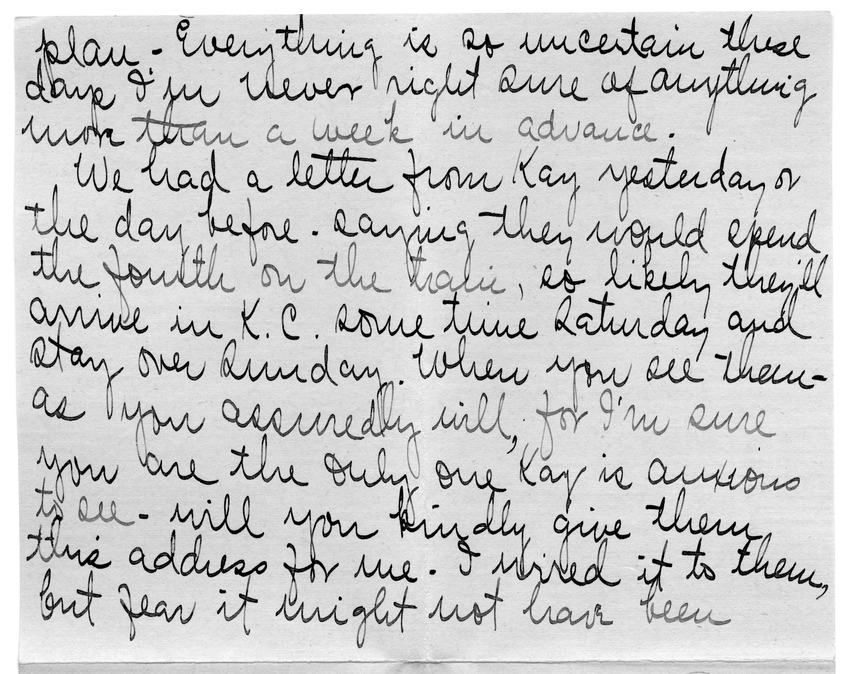 plan - Everything is so uncertain these
days I'm never right sure of anything
more than a week in advance.
We had a letter from Kay yesterday or
the day before - saying they would spend
the fourth on the train, so likely they'll
arrive in K.C. some time Saturday and
stay over Sunday. When you see them -
as you assuredly will, for I'm sure
you are the only one Kay is anxious
to see - will you kindly give them
this address for me. I wired it to them,
but fear it might not have been